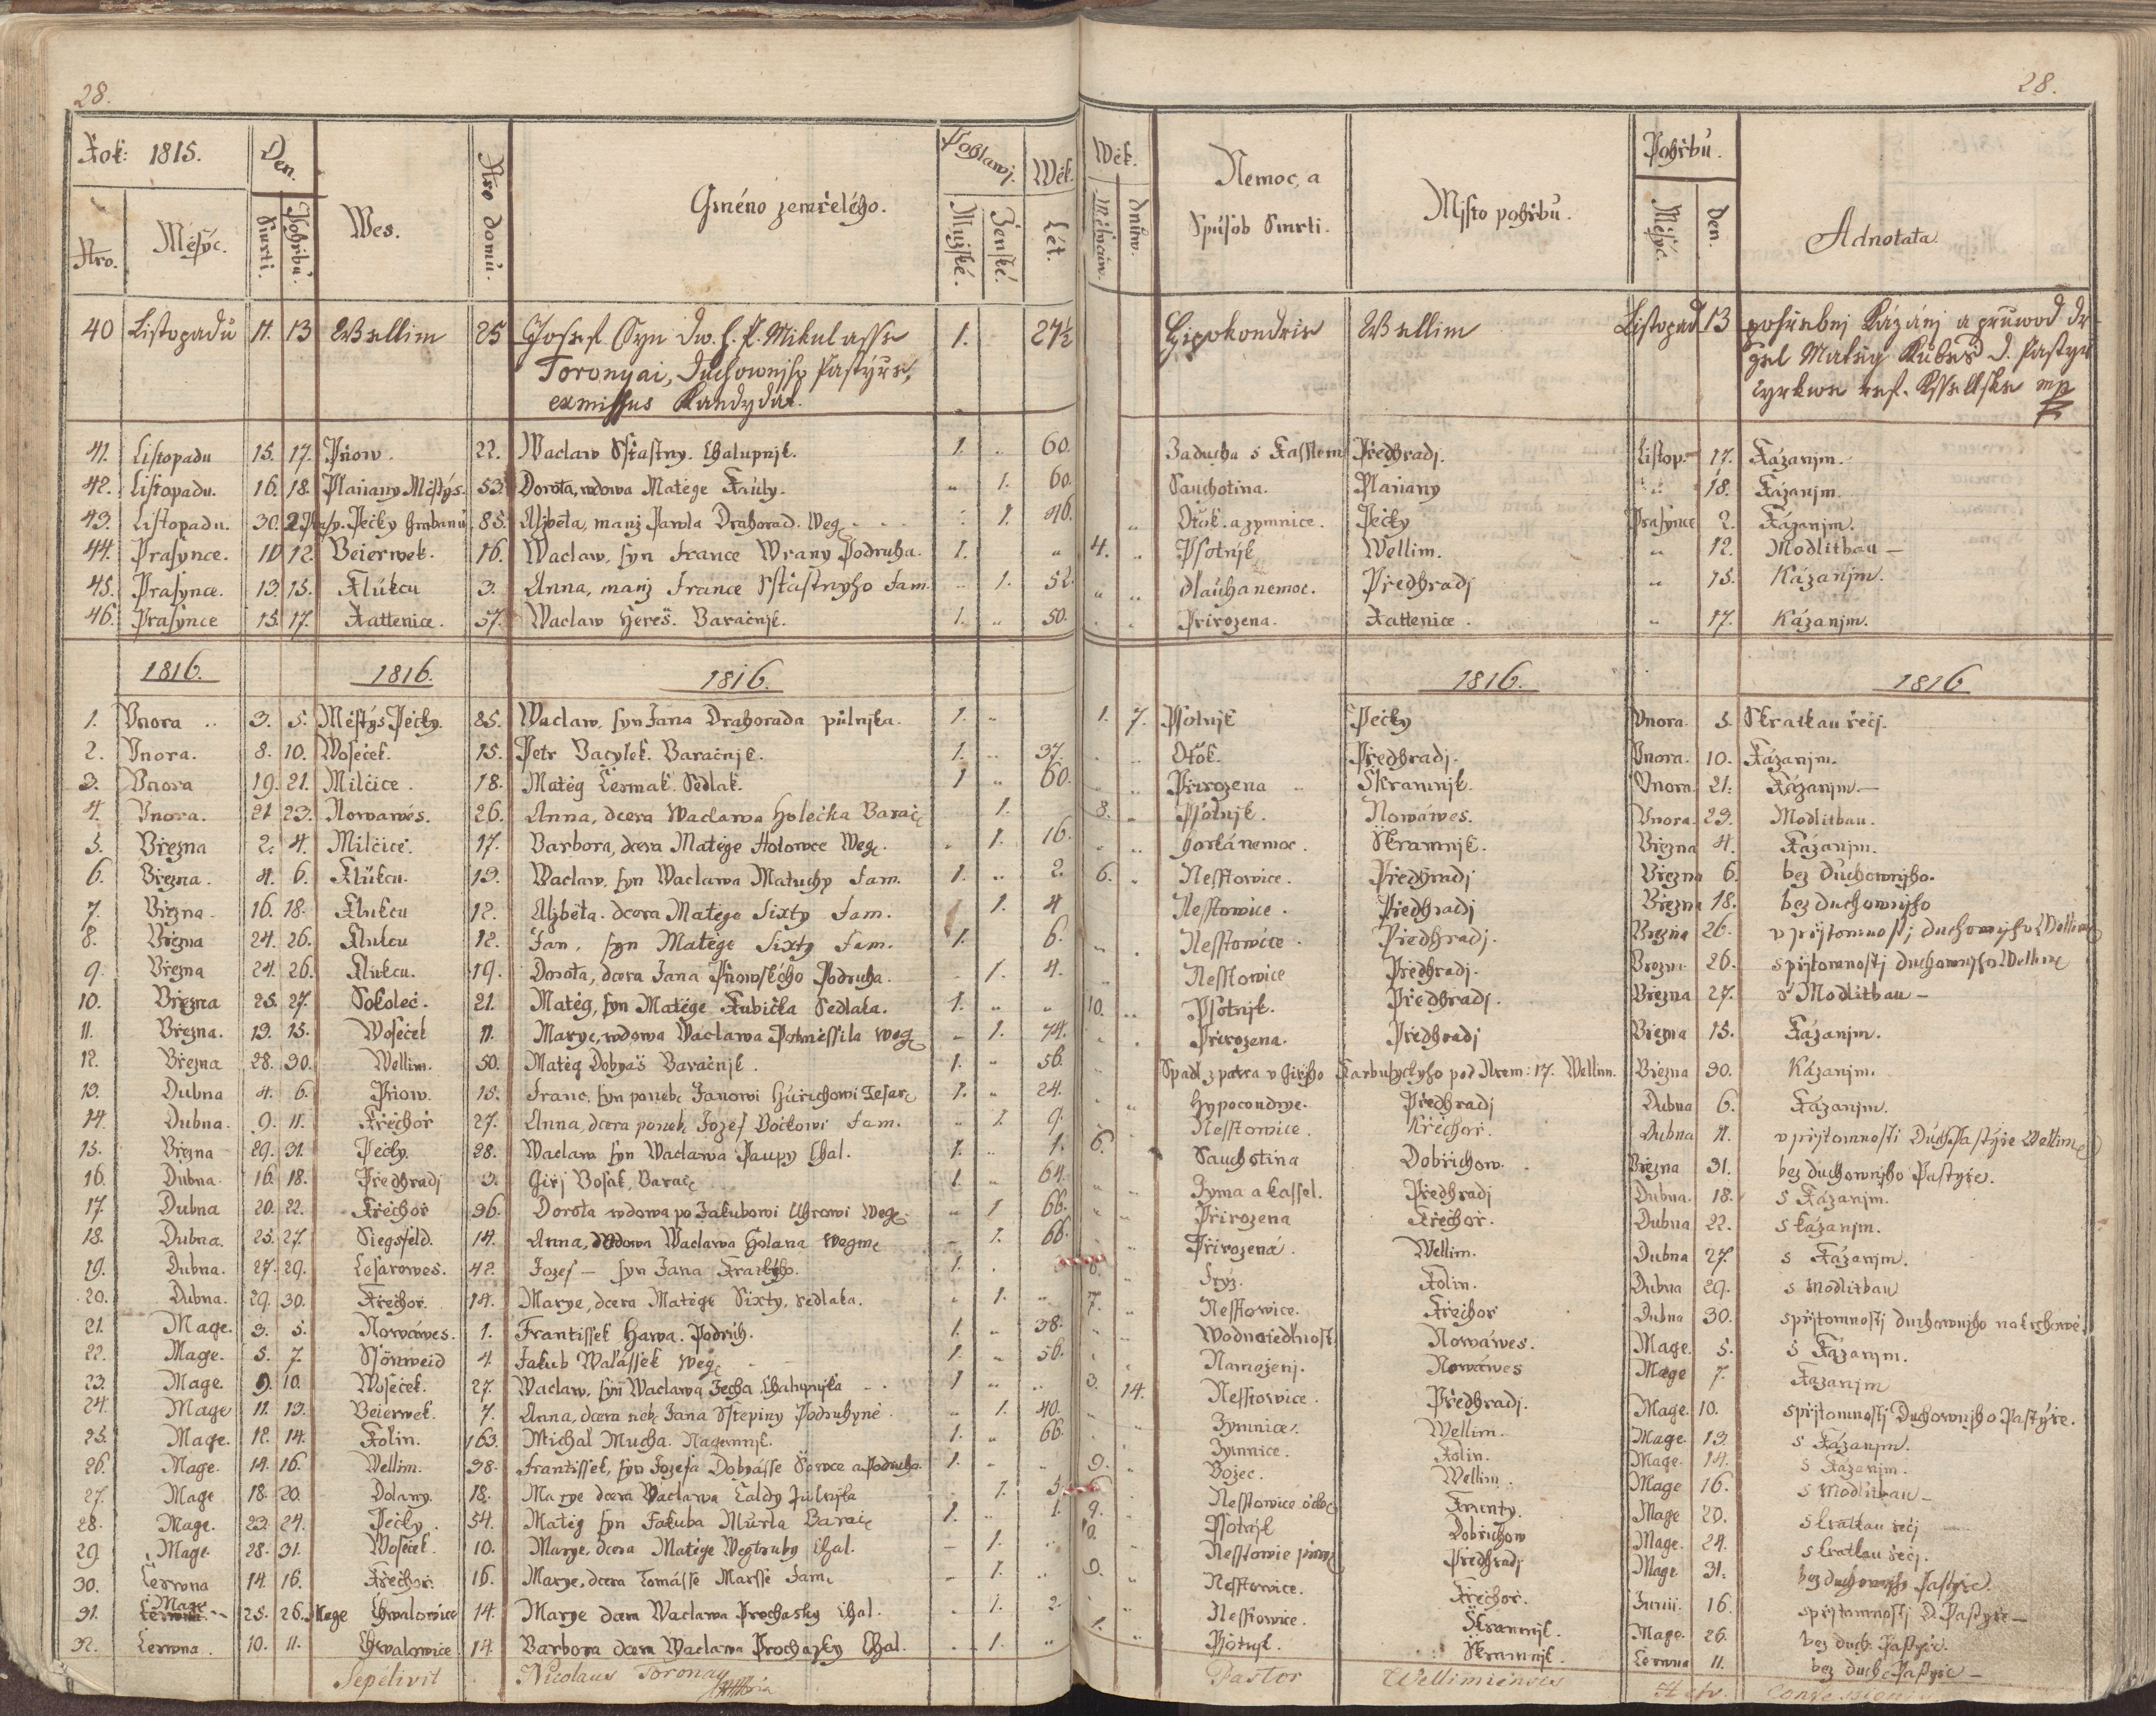 28.
28.
Rok: 1815. Den. Wes. Nro domu. Gméno zemřelého. Pohlawj. Wěk. Wěk. Nemoc, a Spúsob Smrti. Mjsto pohřbu. Pohřbu. Adnotata
Nro. Měsýc. Smrti. Pohřbu. Mužské. Ženské. Lét. Měsýcůw. dnůw. Měsýc. Den.
40 Listopadu 11. 13 Wellim 25 Josef Syn Dw. C. P. Mikulasse 1. 27½ Hipokondrie Wellim Listopad 13 pohřebnj Kázánj a průwod
Toronyai, Duchownjho Pastýře, gel Matěg Kubeš D. Pastyř
exmissus Kandydat. cyrkwe ref.
41. Listopadu 15. 17. Pňow. 22. Waclaw Sstastny. Chalupnjk. 1. „ 60. Zaducha s Kasslem Předhradj. Listop. 17. Kázanjm.
42. Listopadu. 16. 18. Planany Městýs. 53. Dorota, wdowa Matěge „ 1. 60. Sauchotina. Planany „ 18. Kázanjm.
43. Listopadu. 30. 2 Pečky 85. Alžběta, manž Pawla Drahorad. Weg. 1. 46. Otok. a zymnice. Pečky Prasynce 2. Kázanjm.
44. Prasynce. 10 12. Beierwek. 16. Waclaw, syn France Wrany Podruha. 1. „ 4. „ Psotnjk Wellim. „ 12. Modlitbau —
45. Prasynce. 13. 15. Klúkcu 3. Anna, manž France Sstastnyho Fam. 1. 52. „ „ dlauha nemoc. Předhradj „ 15. Kázanjm.
46. Prasynce 15. 17. Rattenice. 37. Waclaw Hereš. Baračnjk. 1. „ 50. Přirozena. Rattenice. „ 17. Kázanjm.
1816. 1816. 1816. 1816. 1816
1. Vnora 3. 5. Městýs Pečky. 85. Waclaw, syn Jana Drahorada půlnjka. 1. „ 1. 7. Psotnjk Pečky Vnora. 5. S kratkau řečj.
2. Vnora. 8. 10. Woseček. 15. Petr Bacylek. Baračnjk. 1. „ 37. Otok. Předhradj. Vnora. 10. Kázanjm.
3. Vnora 19. 21. Milčice. 18. Matěg Čermak. Sedlak. 1 „ 60. Přirozena Skramnjk. Vnora 21. Kázanjm —
4. Vnora. 21 23. Nowawes. 26. Anna, dcera Waclawa Holečka Barač 1. 8. Psotnjk. Nowáwes. Vnora. 23. Modlitbau.
5. Března 2. 4. Milčice. 17. Barbora, dcera Matěge Holowce Weg. 1. 16. horká nemoc. Skramnjk. Března 4. Kázanjm.
6. Března. 4. 6. Klúkcu. 19. Waclaw, syn Waclawa Matuchy Fam. 1. 2. 6. Nesstowice. Předhradj Března 6. bez duchownjho.
7. Března. 16. 18. Klukcu 12. Alžběta. dcera Matěge Sixty Fam. 1. 4 Nesstowice. Předhradj Března 18. bez duchownjho
8. Března 24. 26. Klukcu 12. Jan, syn Matěge Sixty Fam. 1. 6. Nesstowice. Předhradj. Března 26. v přjtomnosti duchownjho Wellim
9. Března 24. 26. Klukcu. 19. Dorota, dcera Jana Pňowského Podruha. 1. 4. Nesstowice Předhradj. Března 26. s přjtomnostj duchownjho Wellim
10. Března 25. 27. Sokoleč. 21. Matěg, syn Matěge Kubička Sedlaka. 1. „ „ 10. Psotnjk. Předhradj. Března 27. s Modlitbau —
11. Března. 13. 15. Woseček 11. Marye, wdowa Waclawa Potměssila weg „ 1. 74. Přirozena. Předhradj Března 15. Kázanjm.
12. Března 28. 30. Wellim. 50. Matěg Dobyaš Baračnjk. 1. „ 56. Spadl z patra v Giřjho pod Nrem: 17. Wellim. Března 30. Kázanjm.
13. Dubna 4. 6. Pňow. 15. Franc. syn poneb. Janowi Húrichowi Tesař 1. „ 24. Hypocondrye. Předhradj Dubna 6. Kázanjm.
14. Dubna. 9. 11. Křečhoř 27. Anna, dcera poneb. Jozef Bočkowi Fam. „ 1. 9. Nesstowice. Křečhoř. Dubna 11. v přjtomnosti Duch Pastýře Wellim
15. Března 29. 31. Pečky. 28. Waclaw syn Waclawa Paupy Chal. 1. „ 1. 6. Sauchotina Dobřichow. Března 31. bez duchownjho Pastyře.
16. Dubna. 16. 18. Předhradj 3. Giřj Bosak, Barač 1. „ 64. Zyma a kassel. Předhradj Dubna. 18. s Kázanjm.
17. Dubna 20. 22. Křečhoř 36. Dorota wdowa po Jakubowi Uhrowi Weg. „ 1 66. Přirozena Křečhoř. Dubna 22. s kázanjm.
18. Dubna. 25. 27. Siegsfeld. 14. Anna, wdowa Waclawa Holana wegm 1. 66. Přirozená. Wellim. Dubna 27. s Kázanjm.
19. Dubna. 27. 29. Cesarowes. 42. Jozef — syn Jana Kratkyho. 1. 8. Fryz. Kolin. Dubna 29. s Modlitbau
20. Dubna. 29. 30. Křečhoř. 14. Marye, dcera Matěge Sixty, sedlaka. „ 1. 7. Nesstowice. Křečhoř Dubna 30. s přjtomnostj duchownjho
21. Mage. 3. 5. Nowáwes. 1. Frantissek Hawa. Podruh. 1. „ 38. Wodnatedlnost. Nowáwes. Mage. 5. s Kázanjm.
22. Mage. 5. 7. Ssönweid 4. Jakub Walassek Weg 1. „ 56. Namoženj. Nowáwes Mage 7. Kazanjm
23. Mage. 9. 10. Woseček. 27. Waclaw, syn Waclawa Zecha Chalupnjka 1 „ 3. 14. Nesstowice. Předhradj. Mage. 10. s přjtomnostj Duchownjho Pastýře.
24. Mage 11. 13. Beierwek. 7. Anna, dcera neb. Jana Sstepiny Podruhyně. „ 1. 40. Zymnice. Wellim. Mage. 13. s Kázanjm.
25. Mage. 12. 14. Kolin. 163. Michal Mucha. Nagemnjk. 1. „ 66. Zymnice. Kolin. Mage. 14. s Kázanjm.
26. Mage. 14. 16. Wellim. 98. Frantissek, syn Jozefa Dobyásse Ssewce a Podruha. 1. 9. Božec. Wellim. Mage 16. s Modlitbau —
27. Mage 18. 20. Dolany. 18. Marye dcera Waclawa Caldy půlnjka 1. 3. Nesstowice Frunty. Mage 20. s kratkau řečj
28. Mage. 23. 24. Pečky. 54. Matěg syn Jakuba Murla Barač 1. 1. 9. Psotnjk Dobřichow Mage. 24. s kratkau řečj.
29. Mage. 28. 31. Woseček. 10. Marye, dcera Matěge Wegtruby Chal. — 1. Předhradj Mage 31. bez duchownjho Pastýře.
30. Června 14. 16. Křečhoř. 16. Marye, dcera Tomásse Marsse Fam. — 1. 9. Nesstowice. Křečhoř. Junii. 16. s přjtomnostj D. Pastyře —
31. Mage 25. 26. Mage Chwalowice 14. Marye dcera Waclawa Prochasky Chal. 1. 2. Nesstowice. Skramnjk. Mage. 26. bez duch. Pastyře.
32. Června. 10. 11. Chwalowice 14. Barbora dcera Waclawa Prochasky Chal. 1. „ 1. Psotnjk. Skramnjk. Června 11. bez duch. Pastyře —
Sepelivit Nicolaus Toronay Pastor Wellimiensis